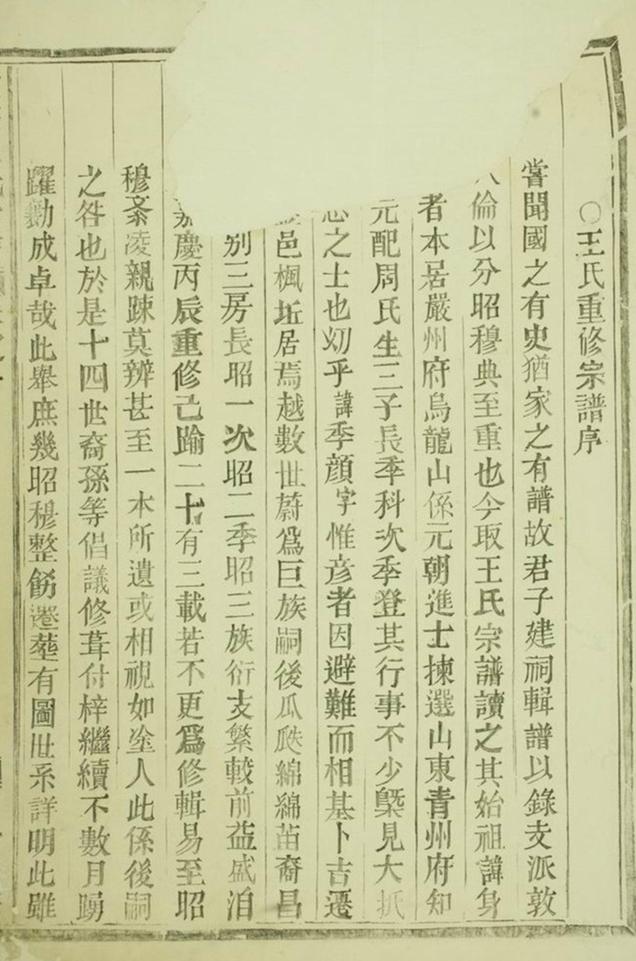 ○王氏重修宗譜序
嘗聞國之有史猶家之有譜故君子建祠輯譜以錄支派敦
倫以分昭穆典至重也今取王氏宗譜讀之其始祖諱身
者本居嚴州府烏龍山係元朝進士揀選山東青州府知
元配周氏生三子長季科次季登其行事不少槩見大抵
之士也刼乎諱季顏字惟彥者因避難而相基卜吉遷
邑楓坵居焉越數世蔚爲巨族嗣後瓜瓞綿綿苗裔昌
别三房長昭一次昭二季昭三族衍支繁較前益盛洎
慶丙辰重修己踰二十有三載若不更爲修輯易至昭
穆紊凌親踈莫辨甚至一本所遺或相視如塗人此係後嗣
之咎也於是十四世裔孫等倡議修葺付梓繼續不數月踴
躍勷成卓哉此舉庶幾昭穆整飭塋有圖世系詳明此雖